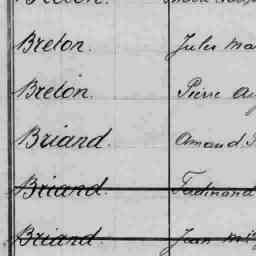 Breton.
Breton. Jules
Breton. Pierre
Briand. Amand
Briand. Ferdinand
Briand. Jean